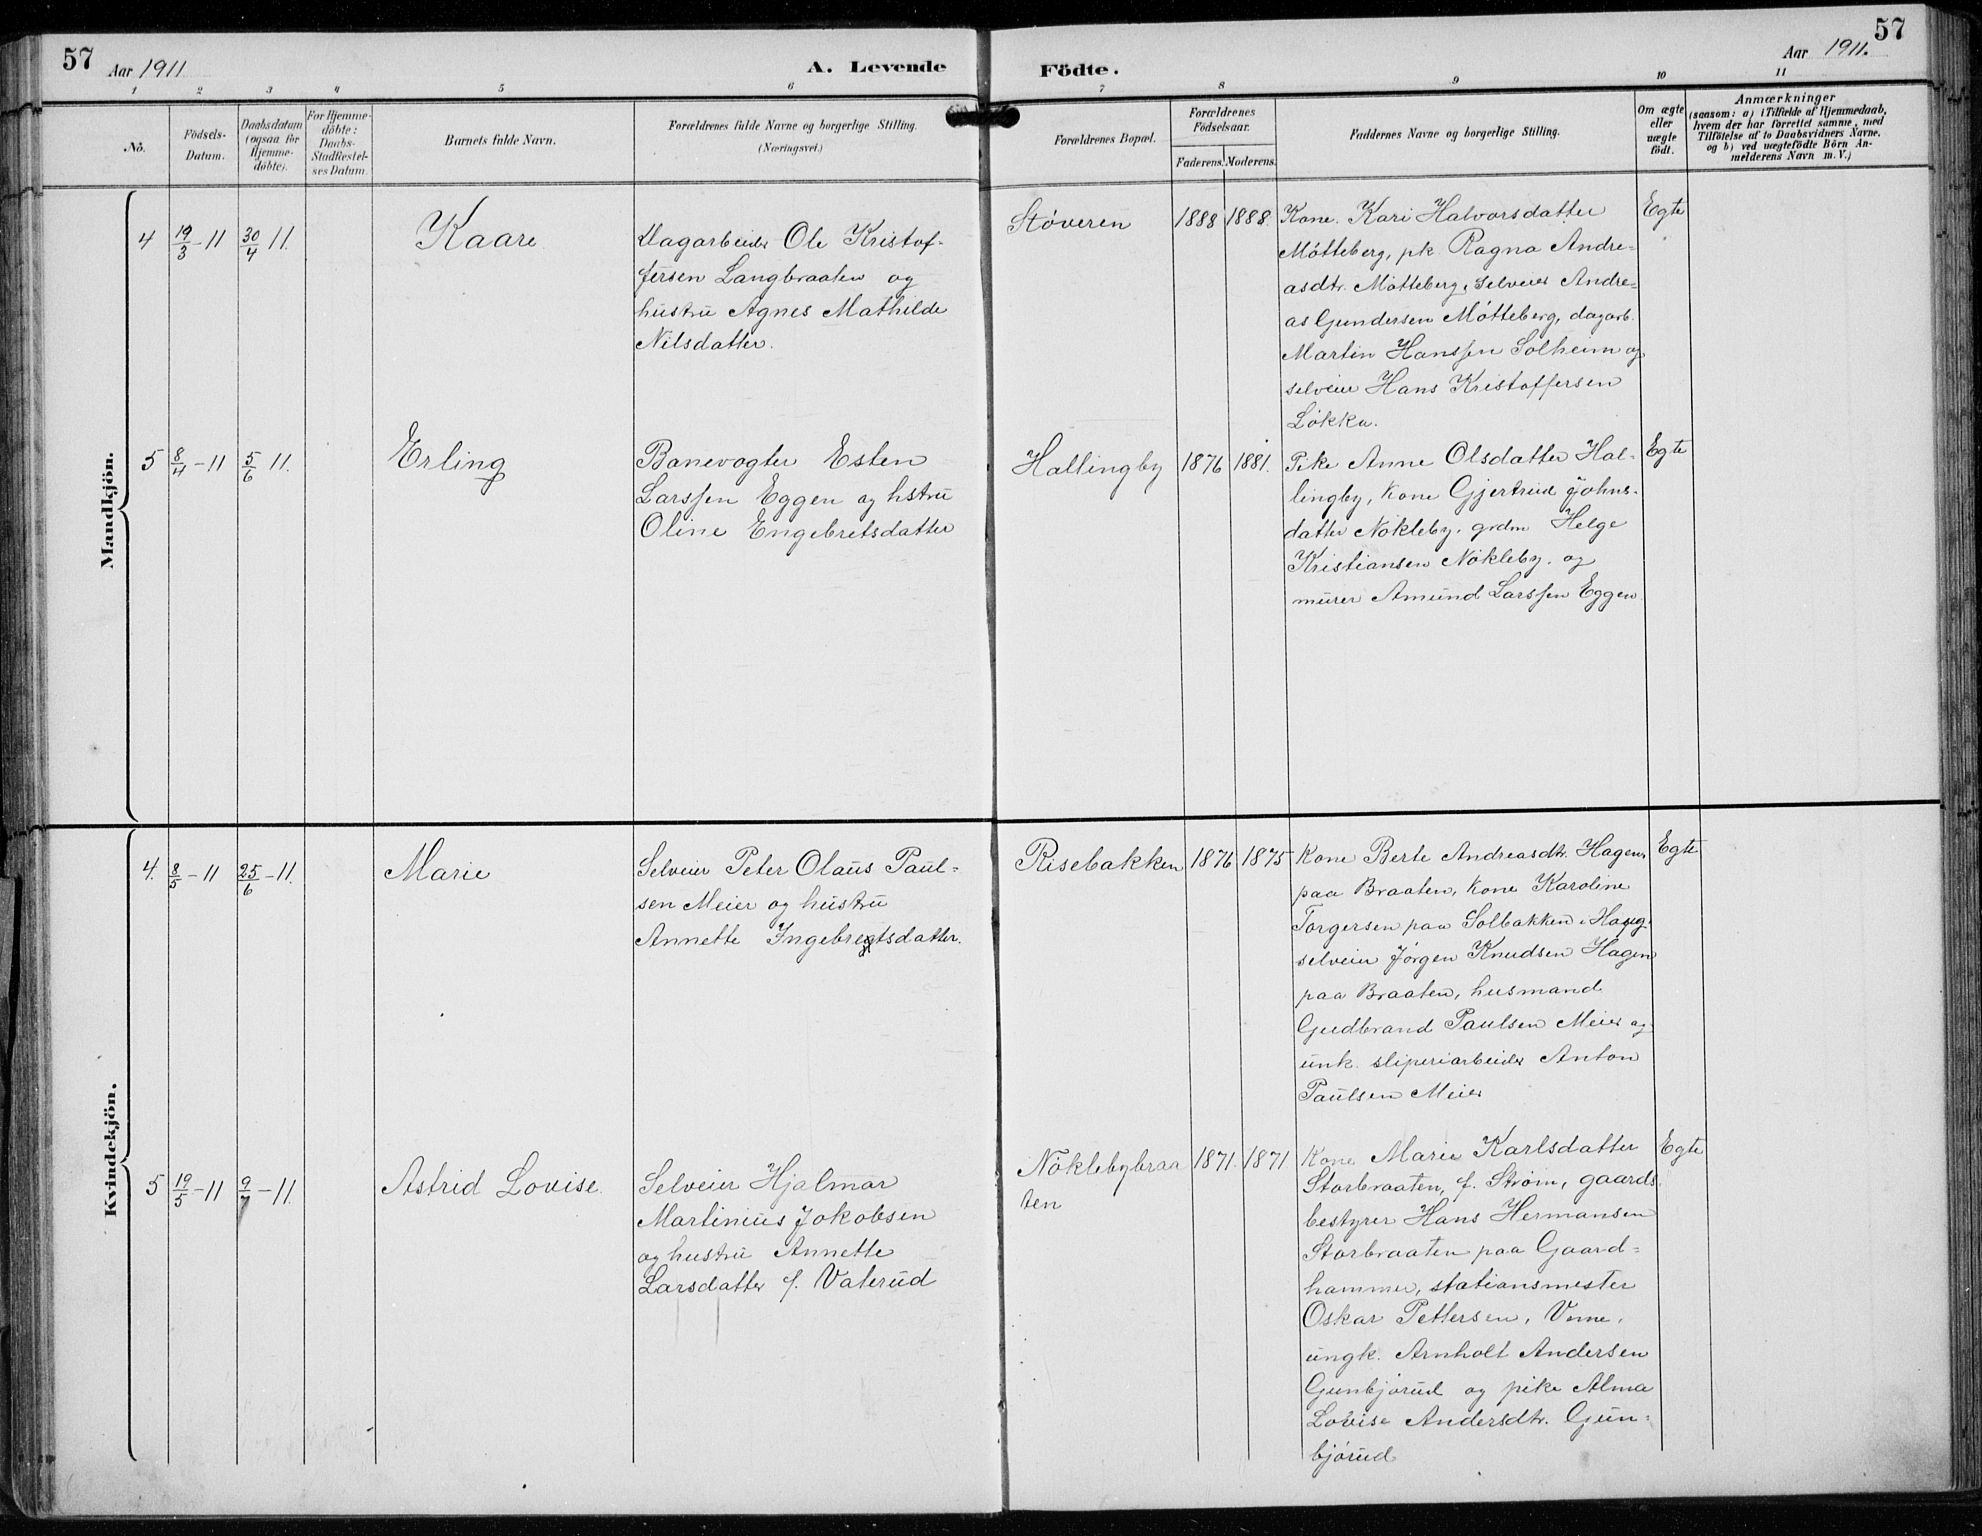 57
Aar 1911
A. Levende
Födte.
Aar 1911.
57
1 2 3 4 5 6 7 8 9 10 11
No.
Födsels-
Datum.
Daabsdatum
(ogsaa for
Hjemme-
döbte).
For Hjemme-
döbte:
Daabs-
Stadfæstel-
ses Datum.
Barnets fulde Navn.
Forældrenes fulde Navne og borgerlige Stilling.
(Næringsvei.)
Forældrenes Bopæl.
Forældrenes
Födselsaar.
Faderens. Moderens.
Faddernes Navne og borgerlige Stilling.
Om ægte
eller
uægte
født.
Anmærkninger
(saasom: a) i Tilfælde af Hjemmedaab,
hvem der har forrettet samme, med
Tilföielse af to Daabsvidners Navne,
og b) ved uægtefödte Börn An-
melderens Navn m. V.)
Mandkjön.
4 19/3-11 30/4 11. Kaare
Dagarbeider Ole Kristof-
fersen Langbraaten og
hustru Agnes Mathilde
Nilsdatter.
Støveren 1888 1888.
Kone Kari Halvorsdatter
Møtteberg, pk Ragna Andre-
asdtr. Møtteberg, selveier Andre-
as Gundersen Møtteberg, dagarb.
Martin Hanssen Solheim og
selveier Hans Kristoffersen
Løkka.
Egte
5 8/4-11 5/6 11. Erling
Banevogter Esten
Larssen Eggen og hstru
Oline Engebretsdatter
Hallingby 1876 1881.
Pike Anne Olsdatter Hal-
lingby, kone Gjertrud Johns-
datter Nøkleby, grdm Helge
Kristiansen Nøkleby, og
murer Amund Larssen Eggen
Egte
Kvindekjön.
4. 8/5-11 25/6-11. Marie
Selveier Peter Olaus Paul-
sen Meier og hustru
Annette Ingebregtsdatter.
Risebakken 1876 1875
Kone Berte Andreasdtr. Hagen
paa Braaten, kone Karoline
Torgersen paa Solbakken i Haug,
selveier Jørgen Knudsen Hagen
paa Braaten, husmand
Gudbrand Paulsen Meier og
unk. sliperiarbeider Anton
Paulsen Meier
Egte
5 19/5-11 9/7-11. Astrid Lovise.
Selveier Hjalmar
Martinius Jokobsen
og hustru Annette
Larsdatter f. Vaterud
Nøklebybraa
ten
1871. 1871
Kone Marie Karlsdatter
Storbraaten, f. Strøm, gaards
bestyrer Hans Hermansen
Storbraaten paa Gaard-
hammer, stationsmester
Oskar Pettersen, Veme,
ungk. Arnholt Andersen
Gunbjørud og pike Alma
Lovise Andersdtr. Gun-
bjørud
Egte